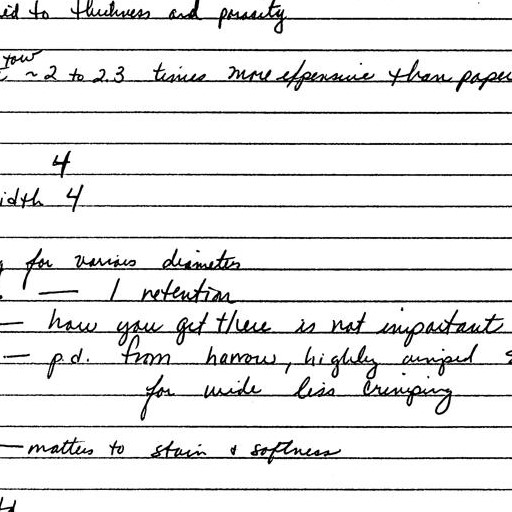 to thickness and porosity
tow
~ 2 to 2.3 times more expensive than paper
4
width 4
for various diameters
— 1 retention
— how you get there is not important
— p.d. from narrow, highly crimped
for wide less crimping
— matters to stain & softness